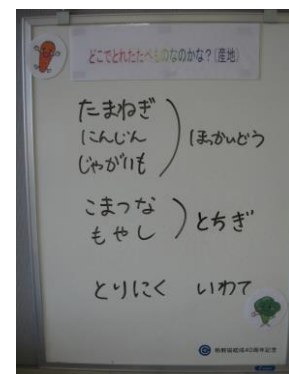 どこでとれたたべものなのかな?(産地)
たまねぎ
にんじん
じゃがいも
ほっかいどう
こまつな
もやし
とちぎ
とりにく いわて